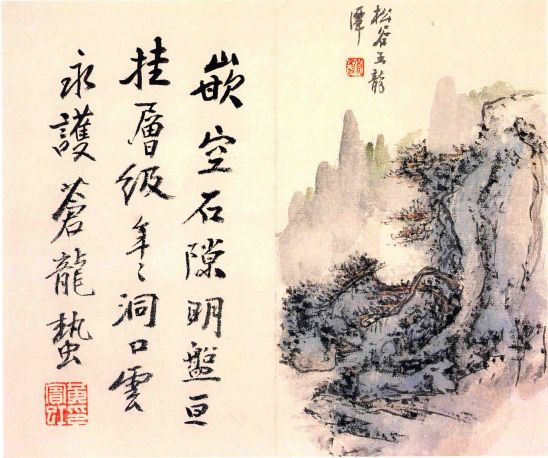 松谷五龍
潭
嵌空石隙明盤亘
挂層級年〻洞口雲
永護蒼龍蟄